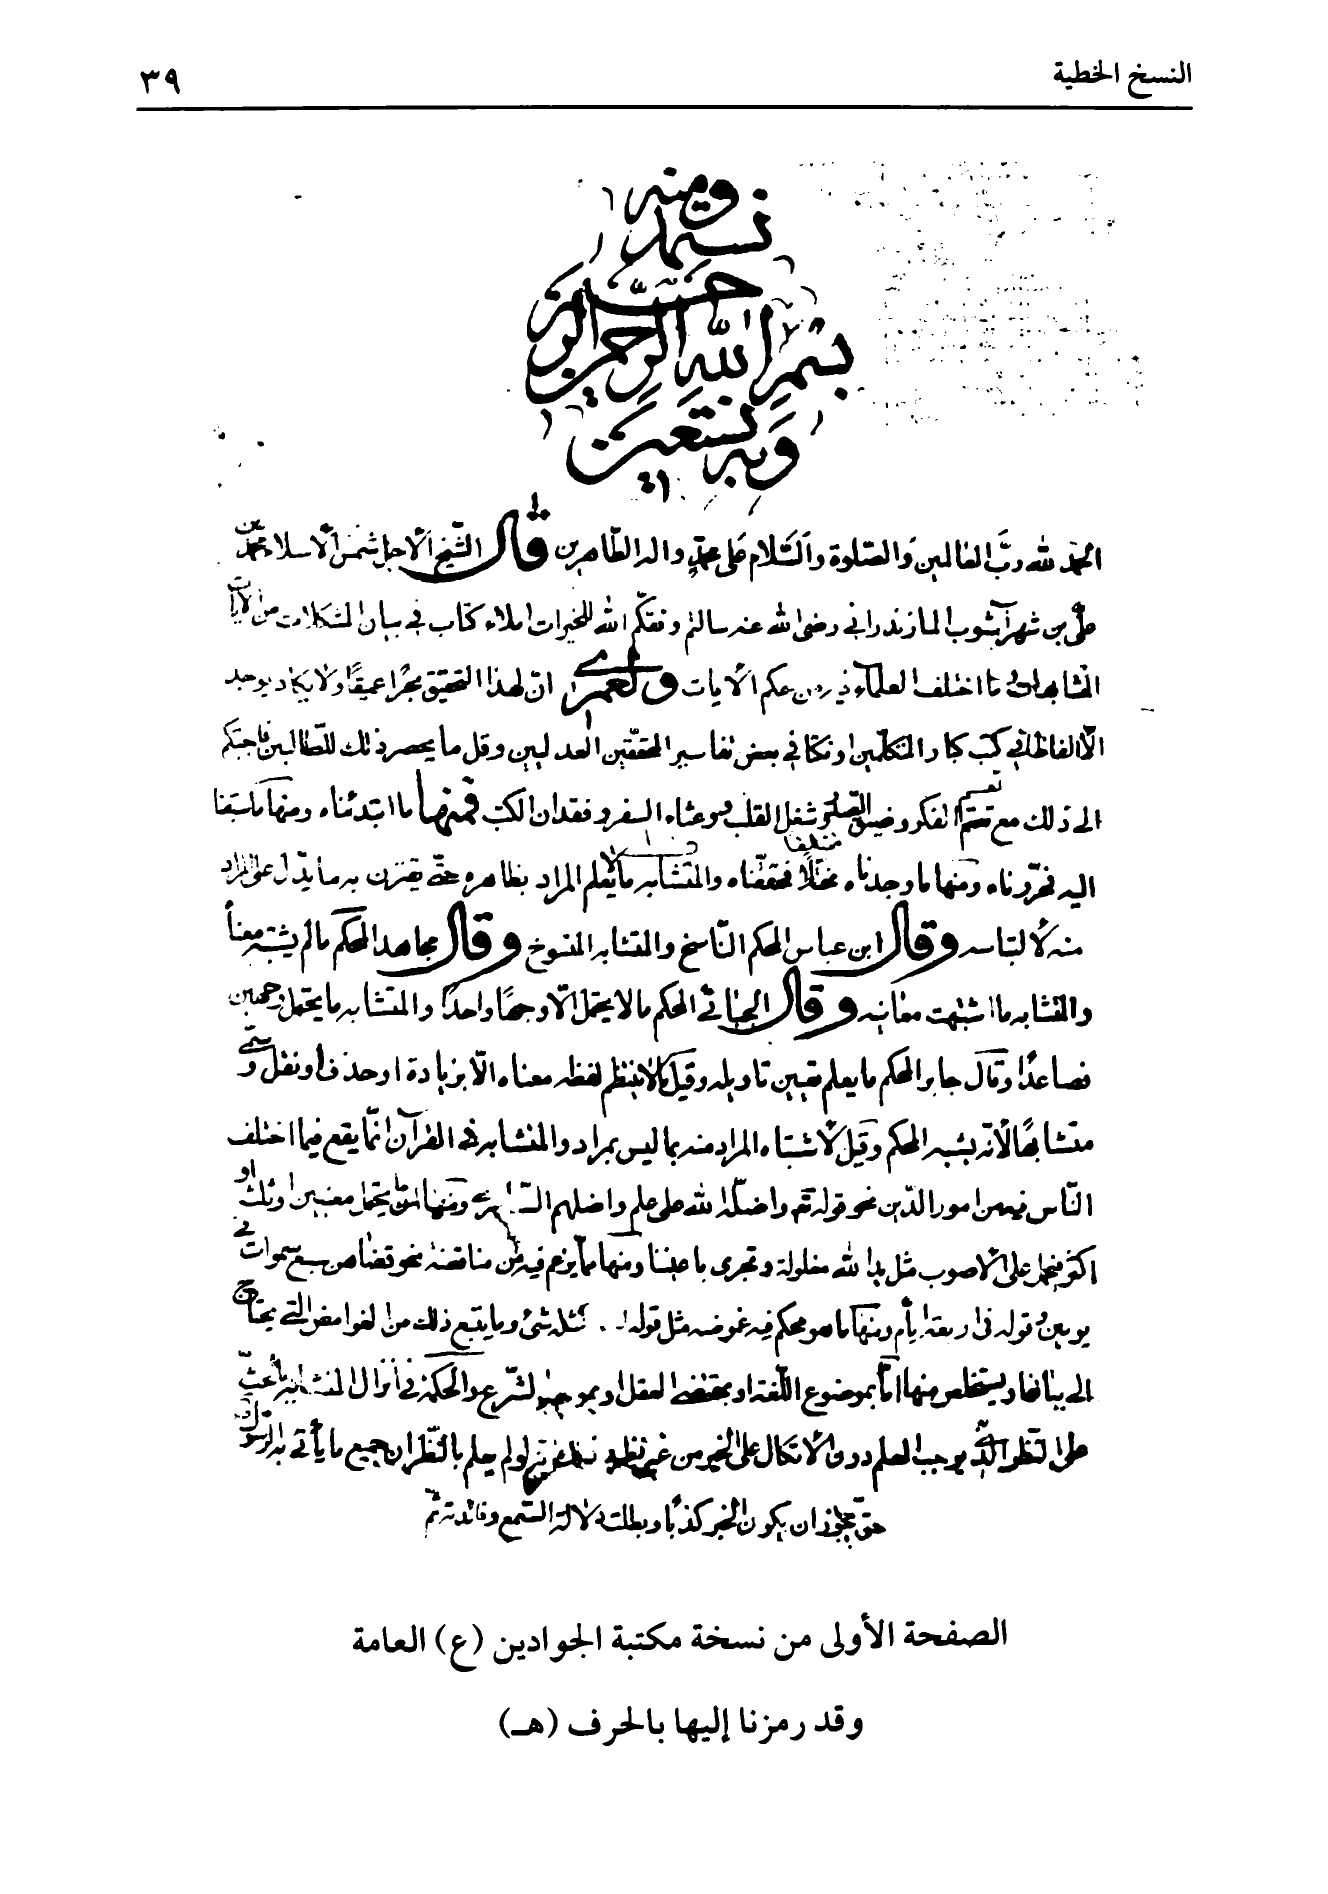 النسخ الخطية
٣٩
ومنه
نستمد
بسم الله الرحمن الرحيم
وبه نستعين
الحمد لله رب العالمين والصلوة والسلام على محمد واله الطاهرين قال الشيخ الاجل شمس الاسلام محمد بن
علي بن شهرآشوب المازندراني رضى الله عنه سالتم وفقكم الله للخيرات املاء كتاب في بيان المشكلات من الآيات
المتشابهات وما اختلف العلماء فيه من حكم الآيات ولعمري ان لهذا التحقيق بحرا عميقا ولا يكاد يوجد
الا الفاظا في كتب كبار المتكلمين او نكتا في بعض تفاسير المحققين العدليين وقل ما يحصر ذلك للطالبين فاجبتكم
الى ذلك مع تقسم الفكر وضيق الصدر وشغل القلب ووعثاء السفر وفقدان الكتب فمنها ما ابتدئناه ومنها ما سبقنا
اليه فحررناه ومنها ما وجدناه مختلا فحققناه والمتشابه ما لا يعلم المراد بظاهره حتى يقترن به ما يدل على المراد
منه لالتباسه وقال ابن عباس المحكم الناسخ والمتشابه المنسوخ وقال مجاهد المحكم مالم يشتبه معناه
والمتشابه ما اشتبهت معانيه وقال الجبائي المحكم مالا يحتمل الا وجها واحدا والمتشابه ما يحتمل وجهين
فصاعدا وقال جابر المحكم ما يعلم تعيين تاويله وقيل مالا ينتظم لفظه معناه الا بزيادة او حذف او نقل وسمي
متشابها لانه يشبه المحكم وقيل لاشتباه المراد منه بما ليس بمراد والمتشابه في القرآن انما يقع فيما اختلف
الناس فيه من امور الدين نحو قوله تع واضله الله على علم واضلهم السامري ومنها ما يحتمل معنيين او ثلث او
اكثر فيحمل على الاصوب مثل يد الله مغلولة وتجرى باعيننا ومنها ما يزعم فيه من مناقضة نحو فقضاهن سبع سموات في
يومين وقوله في اربعة ايام ومنها ما هو محكم فيه غموضه مثل قوله كمثله شئ وما يتبع ذلك من الغوامض التي يحتاج
الى بيانها ويستخلص منها اما بموضوع اللغة او بمقتضى العقل او بموجب الشرع والحكمة في انزال المتشابه الحث
على النظر الذي يوجب العلم دون الاتكال على الخبر من غير نظر لو لم يعلم بالنظر ان جميع ما يأتي به الرسول
حق يجوز ان يكون الخبر كذبا وبطلت دلالة السمع وفائدته ثم
الصفحة الأولى من نسخة مكتبة الجوادين (ع) العامة
وقد رمزنا إليها بالحرف (هـ)